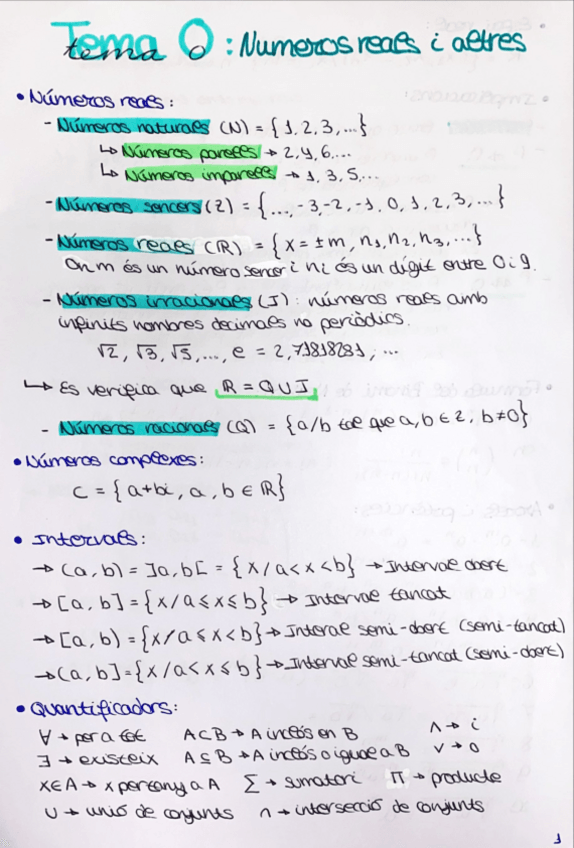 Tema 0: Numeros reals i altres
tema
• Números reals:
- Números naturals (N) = {1, 2, 3, ...}
↳ Números parells → 2, 4, 6...
↳ Números imparells → 1, 3, 5...
- Números sencers (Z) = {..., -3, -2, -1, 0, 1, 2, 3, ...}
- Números reals (ℝ) = {x = ± m, n₁, n₂, n₃, ...}
On m és un número sencer i ni és un dígit entre 0 i 9.
- Números irracionals (I): números reals amb
infinits nombres decimals no periòdics.
√2, √3, √5, ..., e = 2,71818281, ...
↳ Es verifica que ℝ = Q ∪ I
- Números racionals (Q) = {a/b tal que a, b ∈ Z, b ≠ 0}
• Números complexes:
C = {a+bi, a, b ∈ ℝ}
• Intervals:
→ (a, b) = ]a, b[ = {x / a < x < b} → Interval obert
→ [a, b] = {x / a ≤ x ≤ b} → Interval tancat
→ [a, b) = {x / a ≤ x < b} → Interal semi-obert (semi-tancat)
→ (a, b] = {x / a < x ≤ b} → Interval semi-tancat (semi-obert)
• Quantificadors:
∀ → per a tot A ⊂ B → A inclòs en B ∧ → i
∃ → existeix A ⊆ B → A inclòs o igual a B ∨ → o
x ∈ A → x pertany a A Σ → sumatori Π → producte
∪ → unió de conjunts ∩ → intersecció de conjunts
1